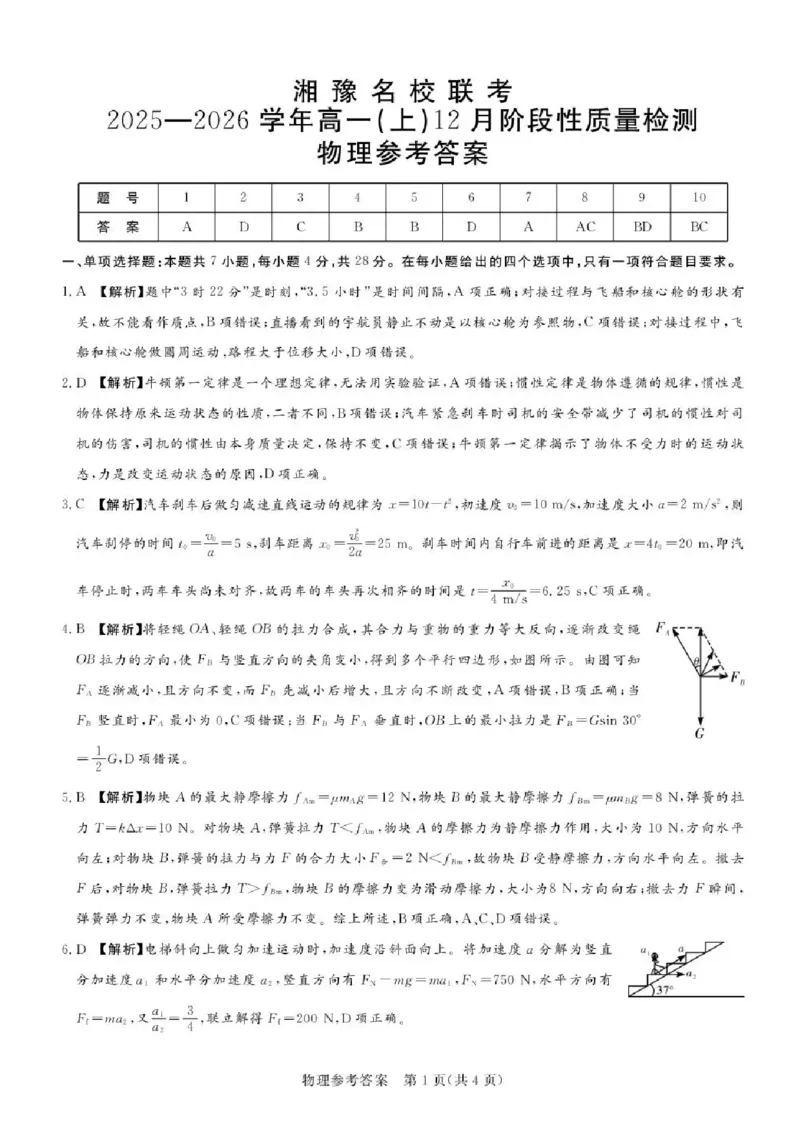 湘豫名校联考
2025—2026 学年高一(上)12 月阶段性质量检测
物理参考答案
题 号 1 2 3 4 5 6 7 8 9 10
答 案 A D C B B D A AC BD BC
一、单项选择题:本题共 7 小题,每小题 4 分,共 28 分。在每小题给出的四个选项中,只有一项符合题目要求。
1. A 【解析】题中“3 时 22 分”是时刻,“3.5 小时”是时间间隔,A 项正确;对接过程与飞船和核心舱的形状有
关,故不能看作质点,B 项错误;直播看到的宇航员静止不动是以核心舱为参照物,C 项错误;对接过程中,飞
船和核心舱做圆周运动,路程大于位移大小,D 项错误。
2. D 【解析】牛顿第一定律是一个理想定律,无法用实验验证,A 项错误;惯性定律是物体遵循的规律,惯性是
物体保持原来运动状态的性质,二者不同,B 项错误;汽车紧急刹车时司机的安全带减少了司机的惯性对司
机的伤害,司机的惯性由本身质量决定,保持不变,C 项错误;牛顿第一定律揭示了物体不受力时的运动状
态,力是改变运动状态的原因,D 项正确。
3. C 【解析】汽车刹车后做匀减速直线运动的规律为 x=10t−t²,初速度 v₀=10 m/s,加速度大小 a=2 m/s²,则
汽车刹停的时间 t₀=v₀/a=5 s,刹车距离 x₀=v₀²/2a=25 m。刹车时间内自行车前进的距离是 x=4t₀=20 m,即汽
车停止时,两车车头尚未对齐,故两车的车头再次相齐的时间是 t=x₀/4 m/s=6.25 s,C 项正确。
4. B 【解析】将轻绳 OA、轻绳 OB 的拉力合成,其合力与重物的重力等大反向,逐渐改变绳
OB 拉力的方向,使 F_B 与竖直方向的夹角变小,得到多个平行四边形,如图所示。由图可知
F_A 逐渐减小,且方向不变,而 F_B 先减小后增大,且方向不断改变,A 项错误,B 项正确;当
F_B 竖直时,F_A 最小为 0,C 项错误;当 F_B 与 F_A 垂直时,OB 上的最小拉力是 F_B=Gsin 30°
=1/2G,D 项错误。
F_A
θ
F_B
G
5. B 【解析】物块 A 的最大静摩擦力 f_Am=μm_Ag=12 N,物块 B 的最大静摩擦力 f_Bm=μm_Bg=8 N,弹簧的拉
力 T=kΔx=10 N。对物块 A,弹簧拉力 T<f_Am,物块 A 的摩擦力为静摩擦力作用,大小为 10 N,方向水平
向左;对物块 B,弹簧的拉力与力 F 的合力大小 F_合=2 N<f_Bm,故物块 B 受静摩擦力,方向水平向左。撤去
F 后,对物块 B,弹簧拉力 T>f_Bm,物块 B 的摩擦力变为滑动摩擦力,大小为8 N,方向向右;撤去力 F 瞬间,
弹簧弹力不变,物块 A 所受摩擦力不变。综上所述,B 项正确,A、C、D 项错误。
6. D 【解析】电梯斜向上做匀加速运动时,加速度沿斜面向上。将加速度 a 分解为竖直
分加速度 a₁ 和水平分加速度 a₂,竖直方向有 F_N−mg=ma₁,F_N=750 N,水平方向有
F_f=ma₂,又a₁/a₂=3/4,联立解得 F_f=200 N,D 项正确。
a₁
a
a₂
37°
物理参考答案 第 1 页(共 4 页)